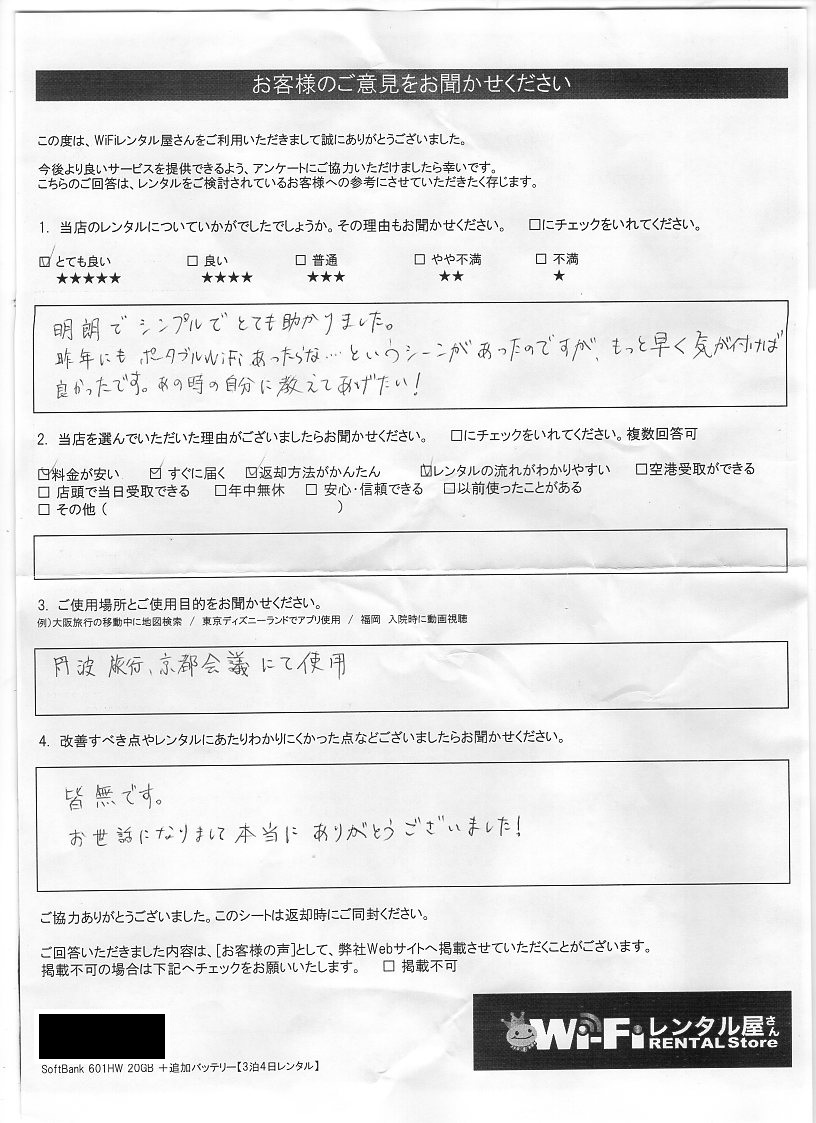 お客様のご意見をお聞かせください
この度は、WiFiレンタル屋さんをご利用いただきまして誠にありがとうございました。
今後より良いサービスを提供できるよう、アンケートにご協力いただけましたら幸いです。
こちらのご回答は、レンタルをご検討されているお客様への参考にさせていただきたく存じます。
1. 当店のレンタルについていかがでしたでしょうか。その理由もお聞かせください。 □にチェックをいれてください。
☑ とても良い □ 良い □ 普通 □ やや不満 □ 不満
★★★★★ ★★★★ ★★★ ★★ ★
明朗でシンプルでとても助かりました。
昨年にもポータブルWiFiあったらな…というシーンがあったのですが、もっと早く気が付けば
良かったです。あの時の自分に教えてあげたい!
2. 当店を選んでいただいた理由がございましたらお聞かせください。 □にチェックをいれてください。複数回答可
☑料金が安い ☑ すぐに届く ☑返却方法がかんたん ☑レンタルの流れがわかりやすい □空港受取ができる
□ 店頭で当日受取できる □年中無休 □ 安心・信頼できる □以前使ったことがある
□ その他 ( )
3. ご使用場所とご使用目的をお聞かせください。
例)大阪旅行の移動中に地図検索 / 東京ディズニーランドでアプリ使用 / 福岡 入院時に動画視聴
丹波旅行、京都会議にて使用
4. 改善すべき点やレンタルにあたりわかりにくかった点などございましたらお聞かせください。
皆無です。
お世話になりまして本当にありがとうございました!
ご協力ありがとうございました。このシートは返却時にご同封ください。
ご回答いただきました内容は、[お客様の声]として、弊社Webサイトへ掲載させていただくことがございます。
掲載不可の場合は下記へチェックをお願いいたします。 □ 掲載不可
Wi-Fiレンタル屋さん
RENTAL Store
SoftBank 601HW 20GB +追加バッテリー【3泊4日レンタル】